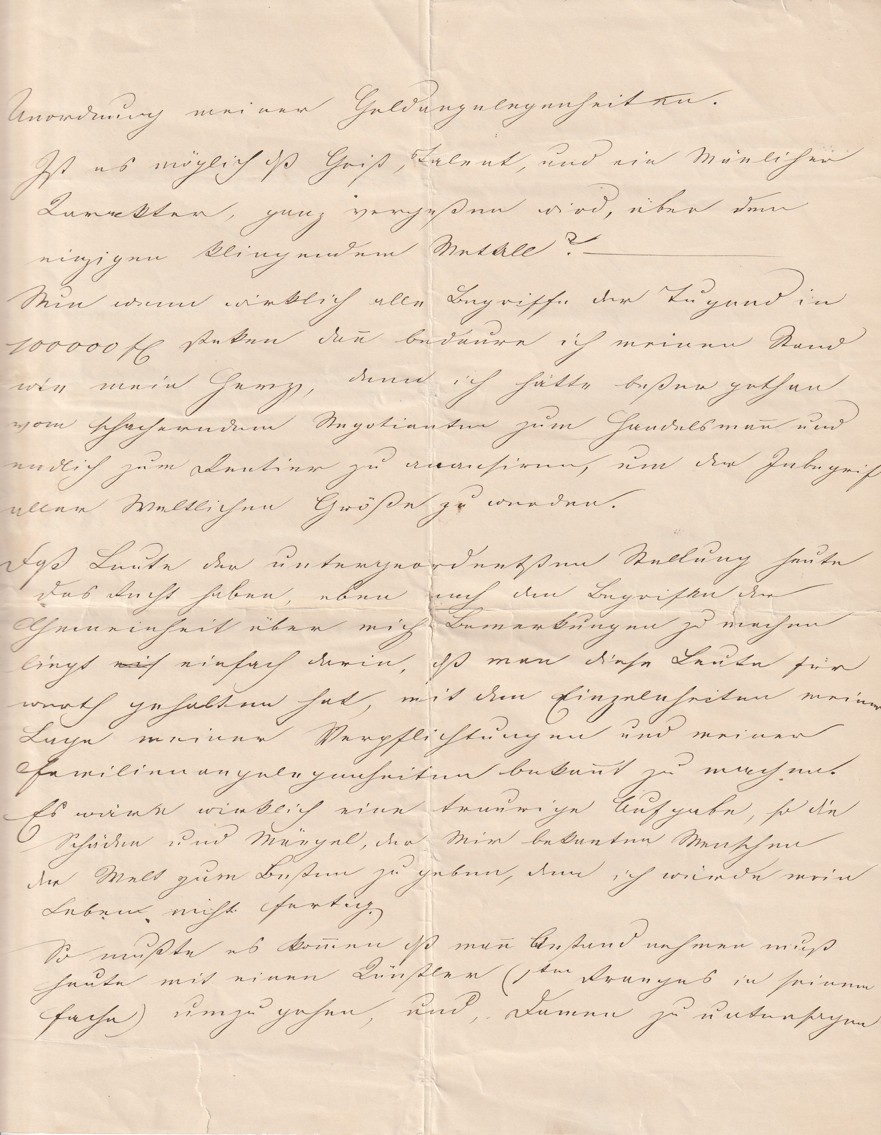 Unordnung meiner Geldangelegenheiten.
Ist es möglich dß Geist, Talent, und ein Mänlicher
Karakter, ganz vergeßen wird, über dem
einzigen klingendem Metall?
Nun wenn wirklich alle Begriffe der Tugend in
100000 fl steken dañ bedaure ich meinen Stand
wie mein Herz, denn ich hätte beßer gethan
vom schacherndem Negotianten zum Handelsmañ und
endlich zum Rentier zu avansiren, um der Inbegrif
aller Weltlichen Größe zu werden.
Daß Leute der untergeordentsten Stellung heute
das Recht haben, eben nach den Begriffen der
Gemeinheit über mich Bemerkungen zu machen
liegt einfach darin, dß man diese Leute für
werth gehalten hat, mit den Einzelnheiten meiner
Lage meiner Verpflichtungen und meiner
Familienangelegenheiten bekañt zu machen.
Es wäre wirklich eine traurige Aufgabe, so die
Schäden und Mängel, der Mir bekanten Menschen
der Welt zum Besten zu geben, denn ich würde mein
Leben nicht fertig.
So mußte es kom̄en dß mann Anstand nehmen muß
heute mit einen Künstler (1ten Ranges in seinem
Fache) umzugehen, und, Damen zu untersagen